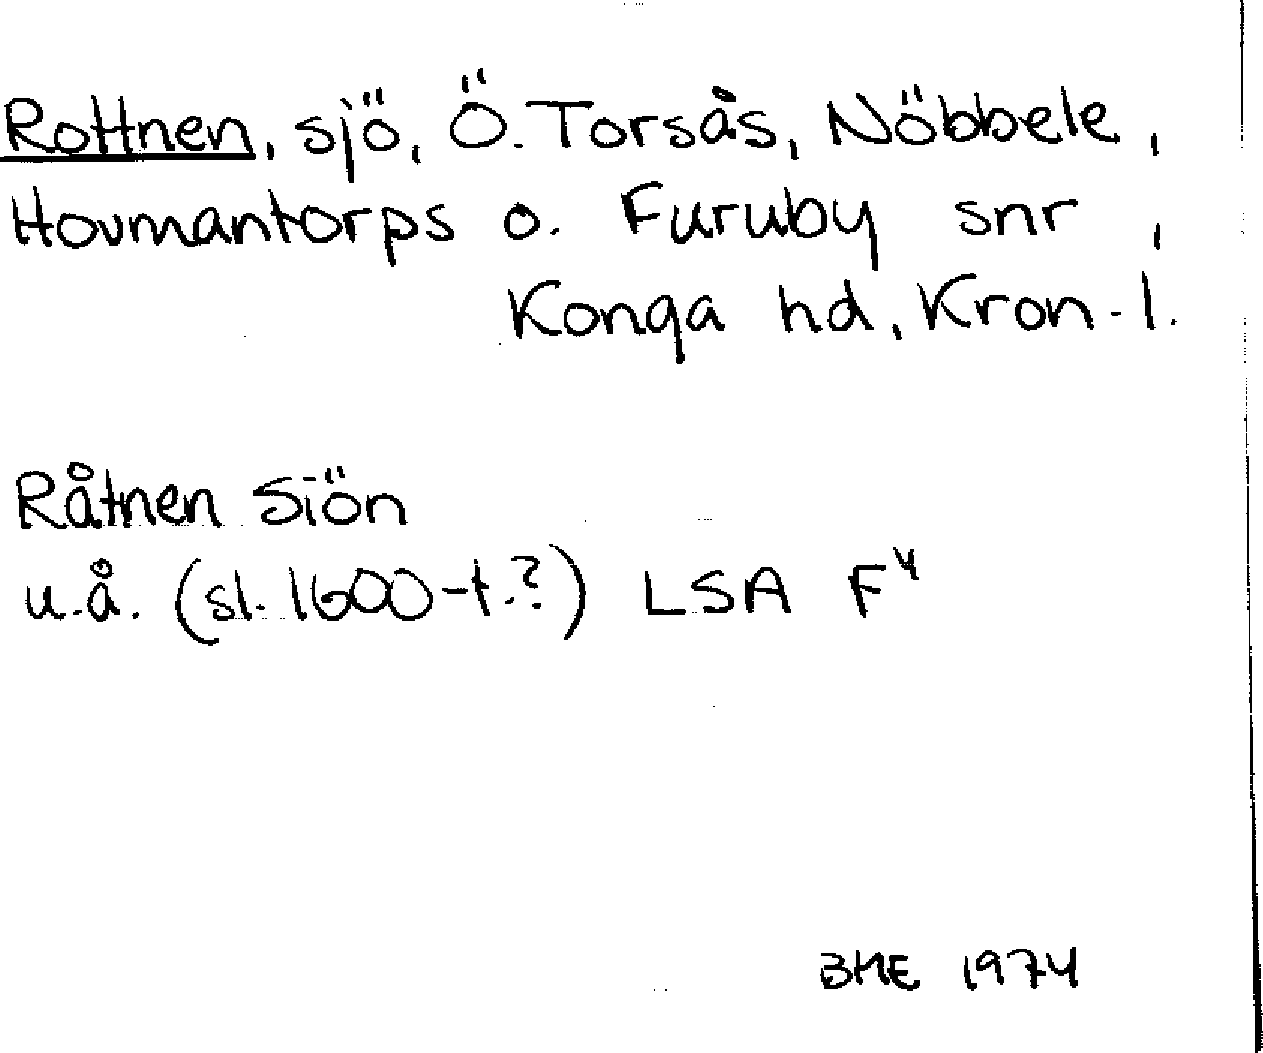 Rottnen, sjö, Ö. Torsås, Nöbbele,
Hovmantorps o. Furuby snr,
Konga hd, Kron. l.
Råtnen Siön
u.å. (sl. 1600-t.?) LSA F⁴
1974